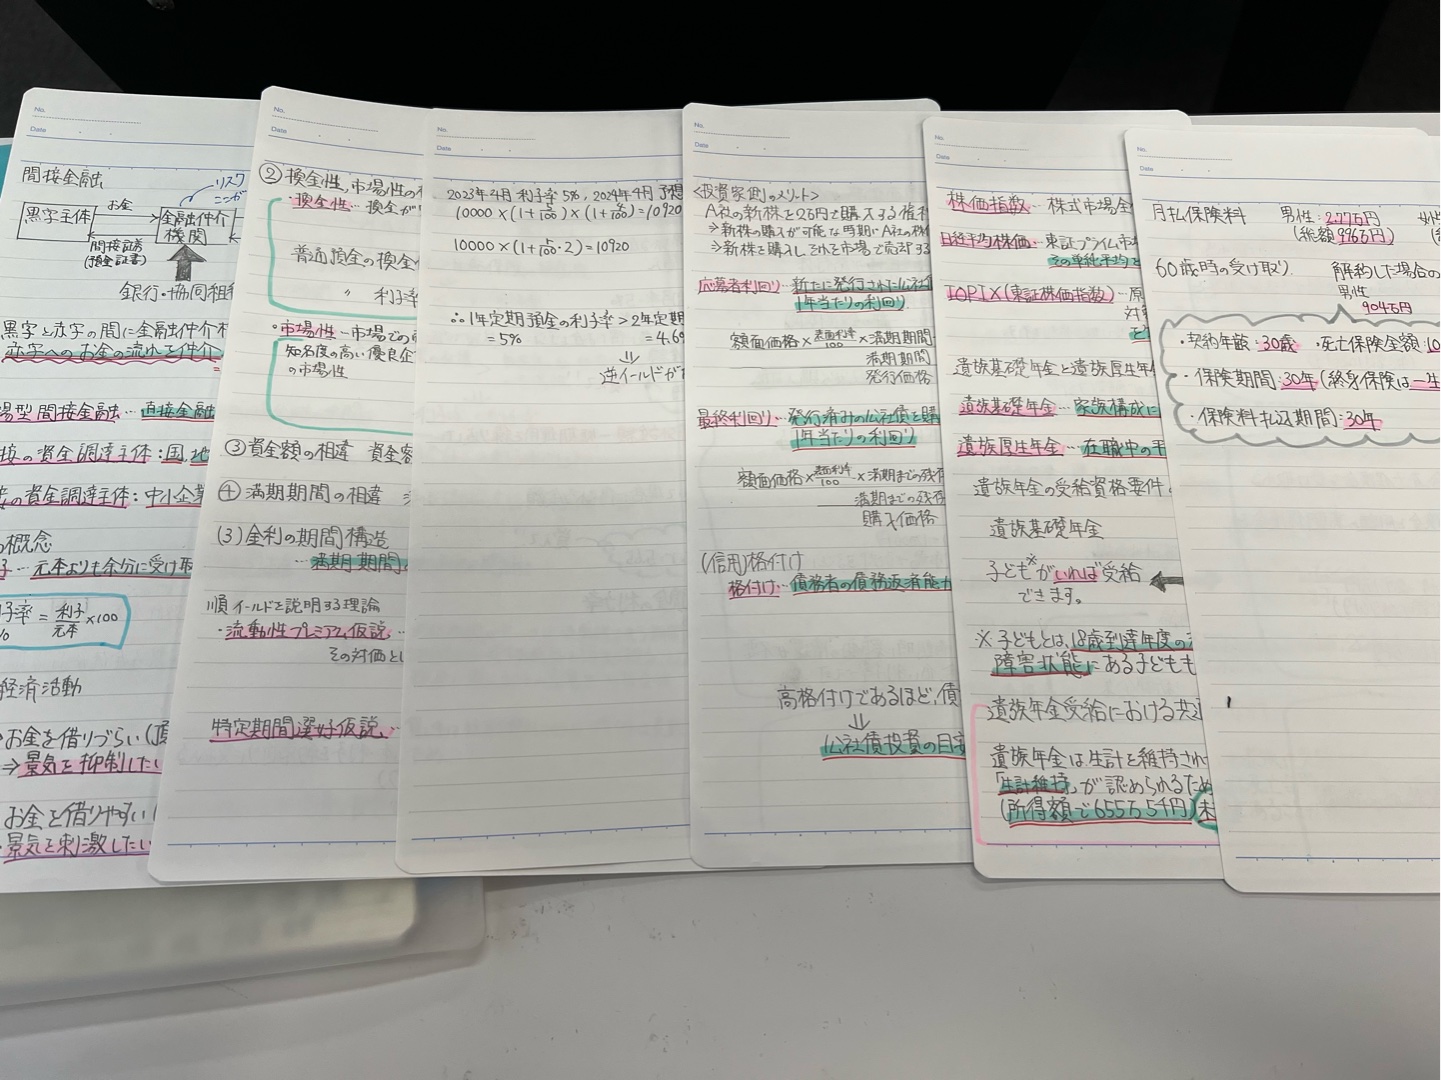 No.
Date
間接金融
リスク
ここが
お金
黒字主体
金融仲介
機関
間接証券
(預金証書)
銀行・協同組
黒字と赤字の間に金融仲介
赤字へのお金の流れを仲介
場型間接金融…直接金融
接の資金調達主体:国,地
の資金調達主体:中小企業
概念
子…元本よりも余分に受け取
子率=利子/元本×100
%
経済活動
お金を借りづらい(
⇒景気を抑制したい
お金を借りやすい(
景気を刺激したい
No.
Date
②換金性,市場性の
・換金性…換金が
普通預金の換金
〃 利子率
・市場性…市場での
知名度の高い優良企
の市場性
③資金額の相違 資金
④満期期間の相違
(3)金利の期間構造
…満期期間
順イールドを説明する理論
・流動性プレミアム仮説…
その対価とし
特定期間選好仮説…
No.
Date
2023年4月利子率5%, 2024年4月予想
10000×(1+5/100)×(1+4/100)=10920
10000×(1+5/100・2)=10920
∴1年定期預金の利子率>2年定期
=5% =4.6
⇓
逆イールドが
No.
Date
<投資家側のメリット>
A社の新株を25円で購入する権利
⇒新株の購入が可能な時期にA社の株
⇒新株を購入しそれを市場で売却する
応募者利回り…新たに発行された公社債
1年当たりの利回り
額面価格×表面利率/100×満期期間
満期期間
発行価格
最終利回り…発行済みの公社債を購
1年当たりの利回り
額面価格×表面利率/100×満期までの残存
満期までの残存
購入価格
(信用)格付け
格付け…債務者の債務返済能力
高格付けであるほど,債
⇓
公社債投資の目安
No.
Date
株価指数…株式市場全
日経平均株価…東証プライム市場
その単純平均を
TOPIX(東証株価指数)…原
対
遺族基礎年金と遺族厚生年
遺族基礎年金…家族構成に
遺族厚生年金…在職中の
遺族年金の受給資格要件
遺族基礎年金
子ども※がいれば受給
できます。
※子どもとは,18歳到達年度の
障害状態にある子どもも
遺族年金受給における共通
遺族年金は生計を維持され
「生計維持」が認められるため
(所得額で655万5千円)未
No.
Date
月払保険料 男性:2.77万円
(総額996万円)
60歳時の受け取り 解約した場合の
男性
904万円
・契約年齢:30歳 ・死亡保険金額:10
・保険期間:30年(終身保険は一生
・保険料払込期間:30年